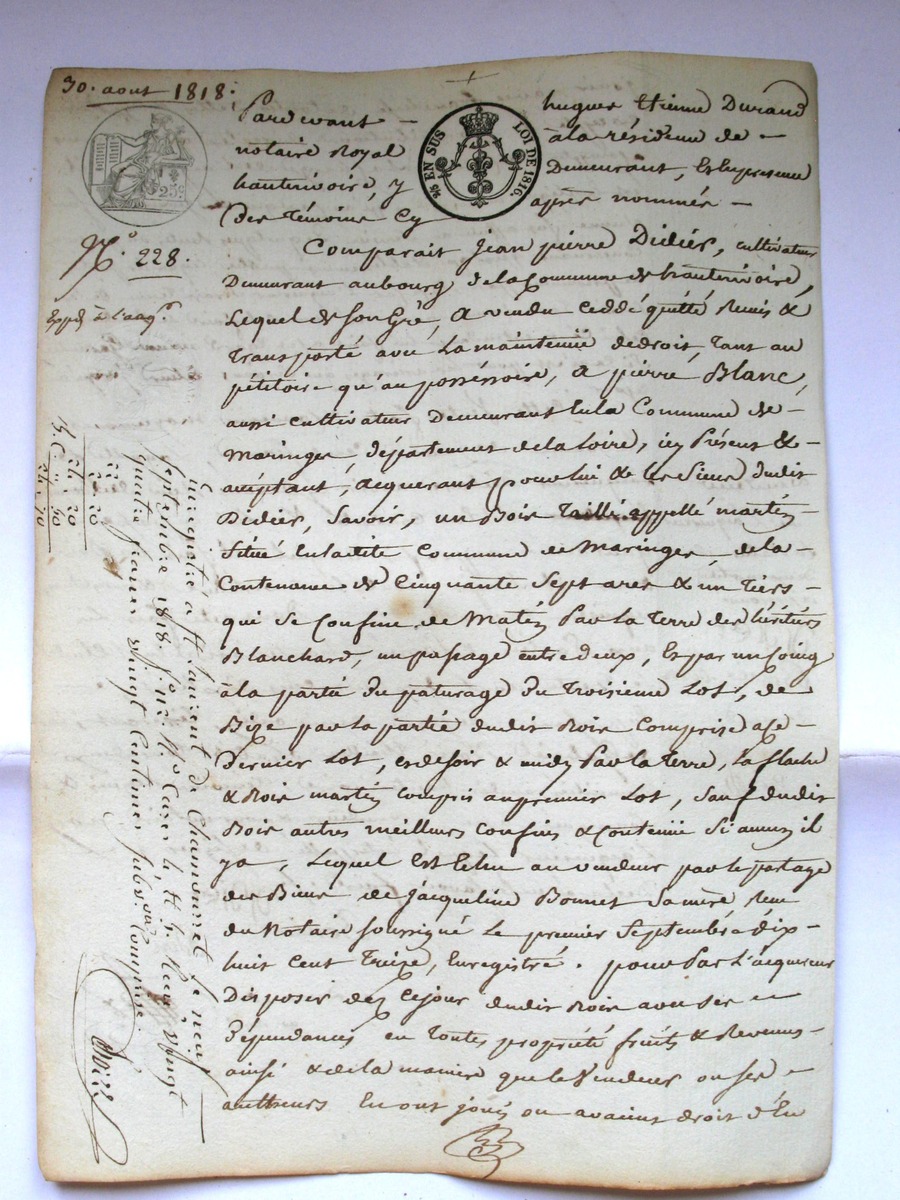 30. aout 1818.
25c.
¾ EN SUS
LOI DE 1816.
N.° 228.
Pardevant – hugues Etienne Durand
notaire Royal à la résidence de –
hauterivoire, y Demeurant, Et En presence
Des Témoins Cy après nommés –
Comparait Jean pierre Didier, cultivateur
Demeurant au bourg de la Commune de hauterivoire,
Lequel de son Gré, A vendu ceddé quitté Remis &
Transporté avec La maintenüe de droit, Tant au
pétitoire qu'au possessoire, A pierre Blanc,
aussi cultivateur Demeurant En la Commune de –
Maringes, département de la Loire, icy Présent & –
acceptant, acquerant pour lui & les Siens dudit
Didier, Savoir, un Bois Taillis appellé martin
Situé En ladite Commune de Maringes de la –
Contenance de Cinquante Sept ares & un Tiers –
qui se Confine de Matin Par la Terre des héritiers
Blanchard, un passage entre deux, Et par un Coing
à la partie du paturage du Troisieme Lot, de
Bize par la partie dudit Bois Comprise a Ce –
Dernier Lot, et de soir & midy Par la Terre, La flache
& Bois martin compris au premier Lot, Sauf dudit
Bois autres meilleurs confins & Contenüe Si aucuns il
y a, Lequel Est Echu au vendeur par le partage
des Biens de Jacqueline Bonnet Sa mère Reçu
du Notaire soussigné Le premier Septembre dix
huit Cent Treize, Enregistré. pour Par L'acquereur
Disposer dez Cejour dudit Bois avec ses –
Dépendances en Toutes propriété fruits & Revenus –
ainsi & de la maniere que le Vendeur ou ses –
autheurs En ont joui ou avaient droit d'En
Enregistré à St Laurent de Chamousset Le neuf
Septembre 1818. f.° 112 R.° Cases
quatre francs vingt Centimes, subv.on Comprise.